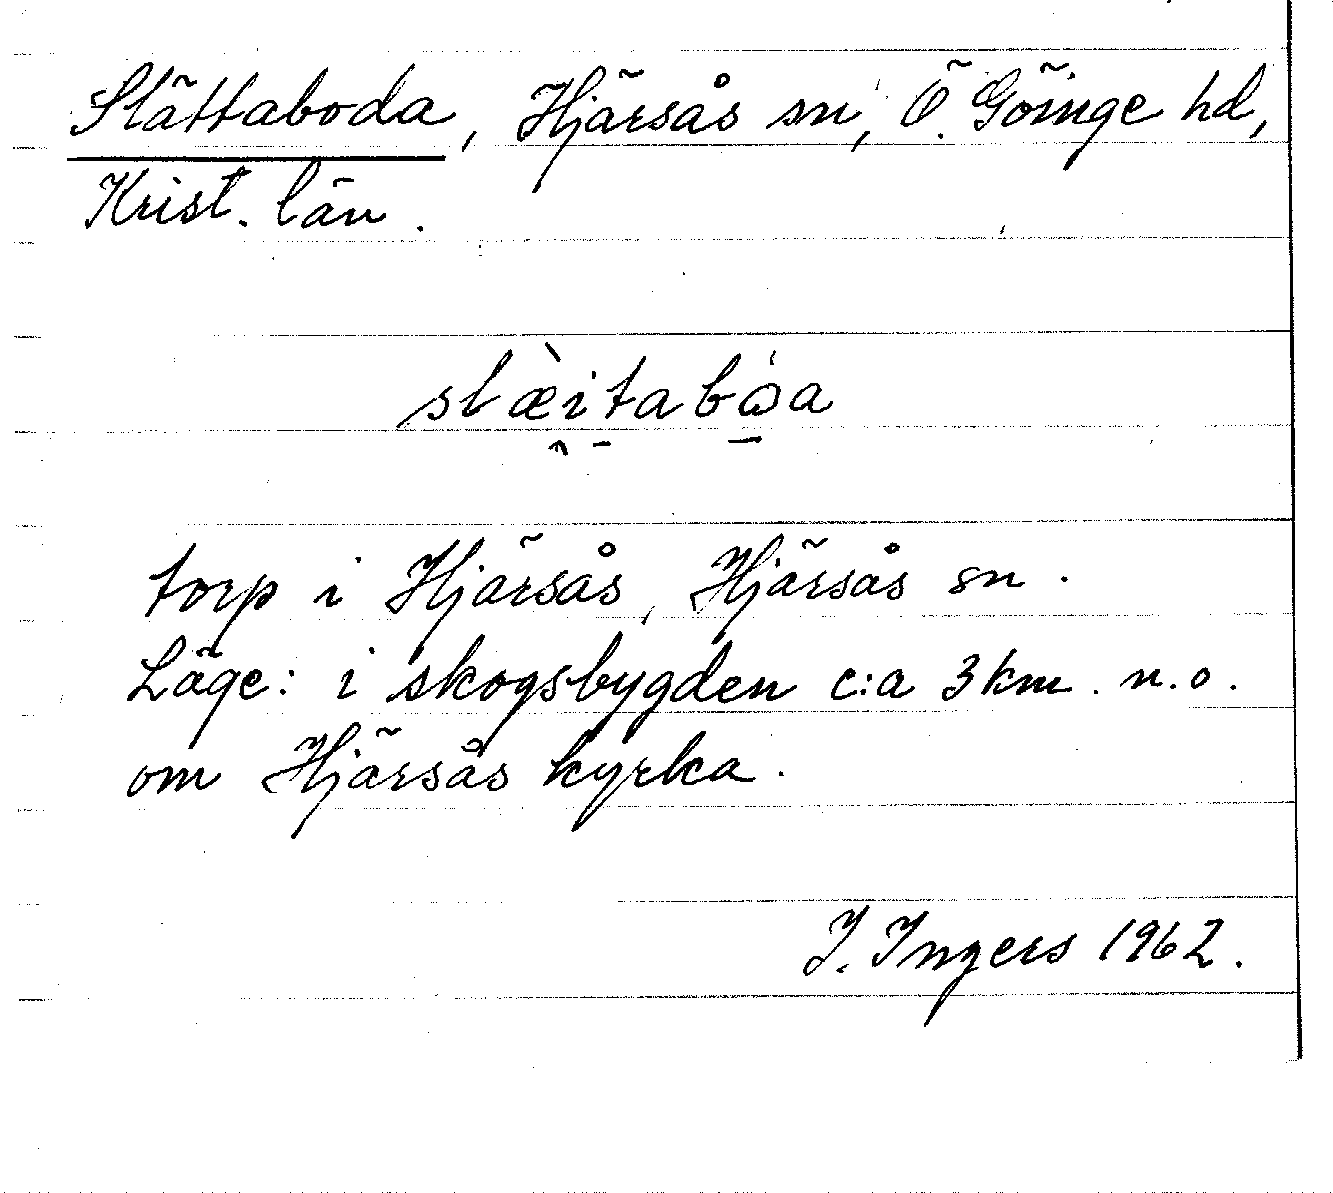 Slättaboda, Hjärsås sn, Ö. Göinge hd,
Krist. län.
slæ̀itabɷ́a
torp i Hjärsås, Hjärsås sn.
Läge: i skogsbygden c:a 3 km. n.o.
om Hjärsås kyrka.
I. Ingers 1962.